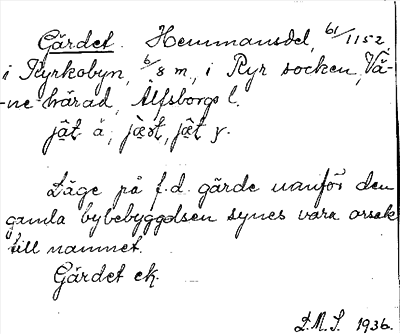 Gärdet. Hemmansdel, 61/1152,
i Kyrkobyn, 6/8 m, i Ryr socken, Vä-
-ne härad, Älfsborgs l.
Läge på f.d. gärde uvanför den
gamla bybebyggelsen synes vara orsak
till namnet.
Gärdet ek.
1936.